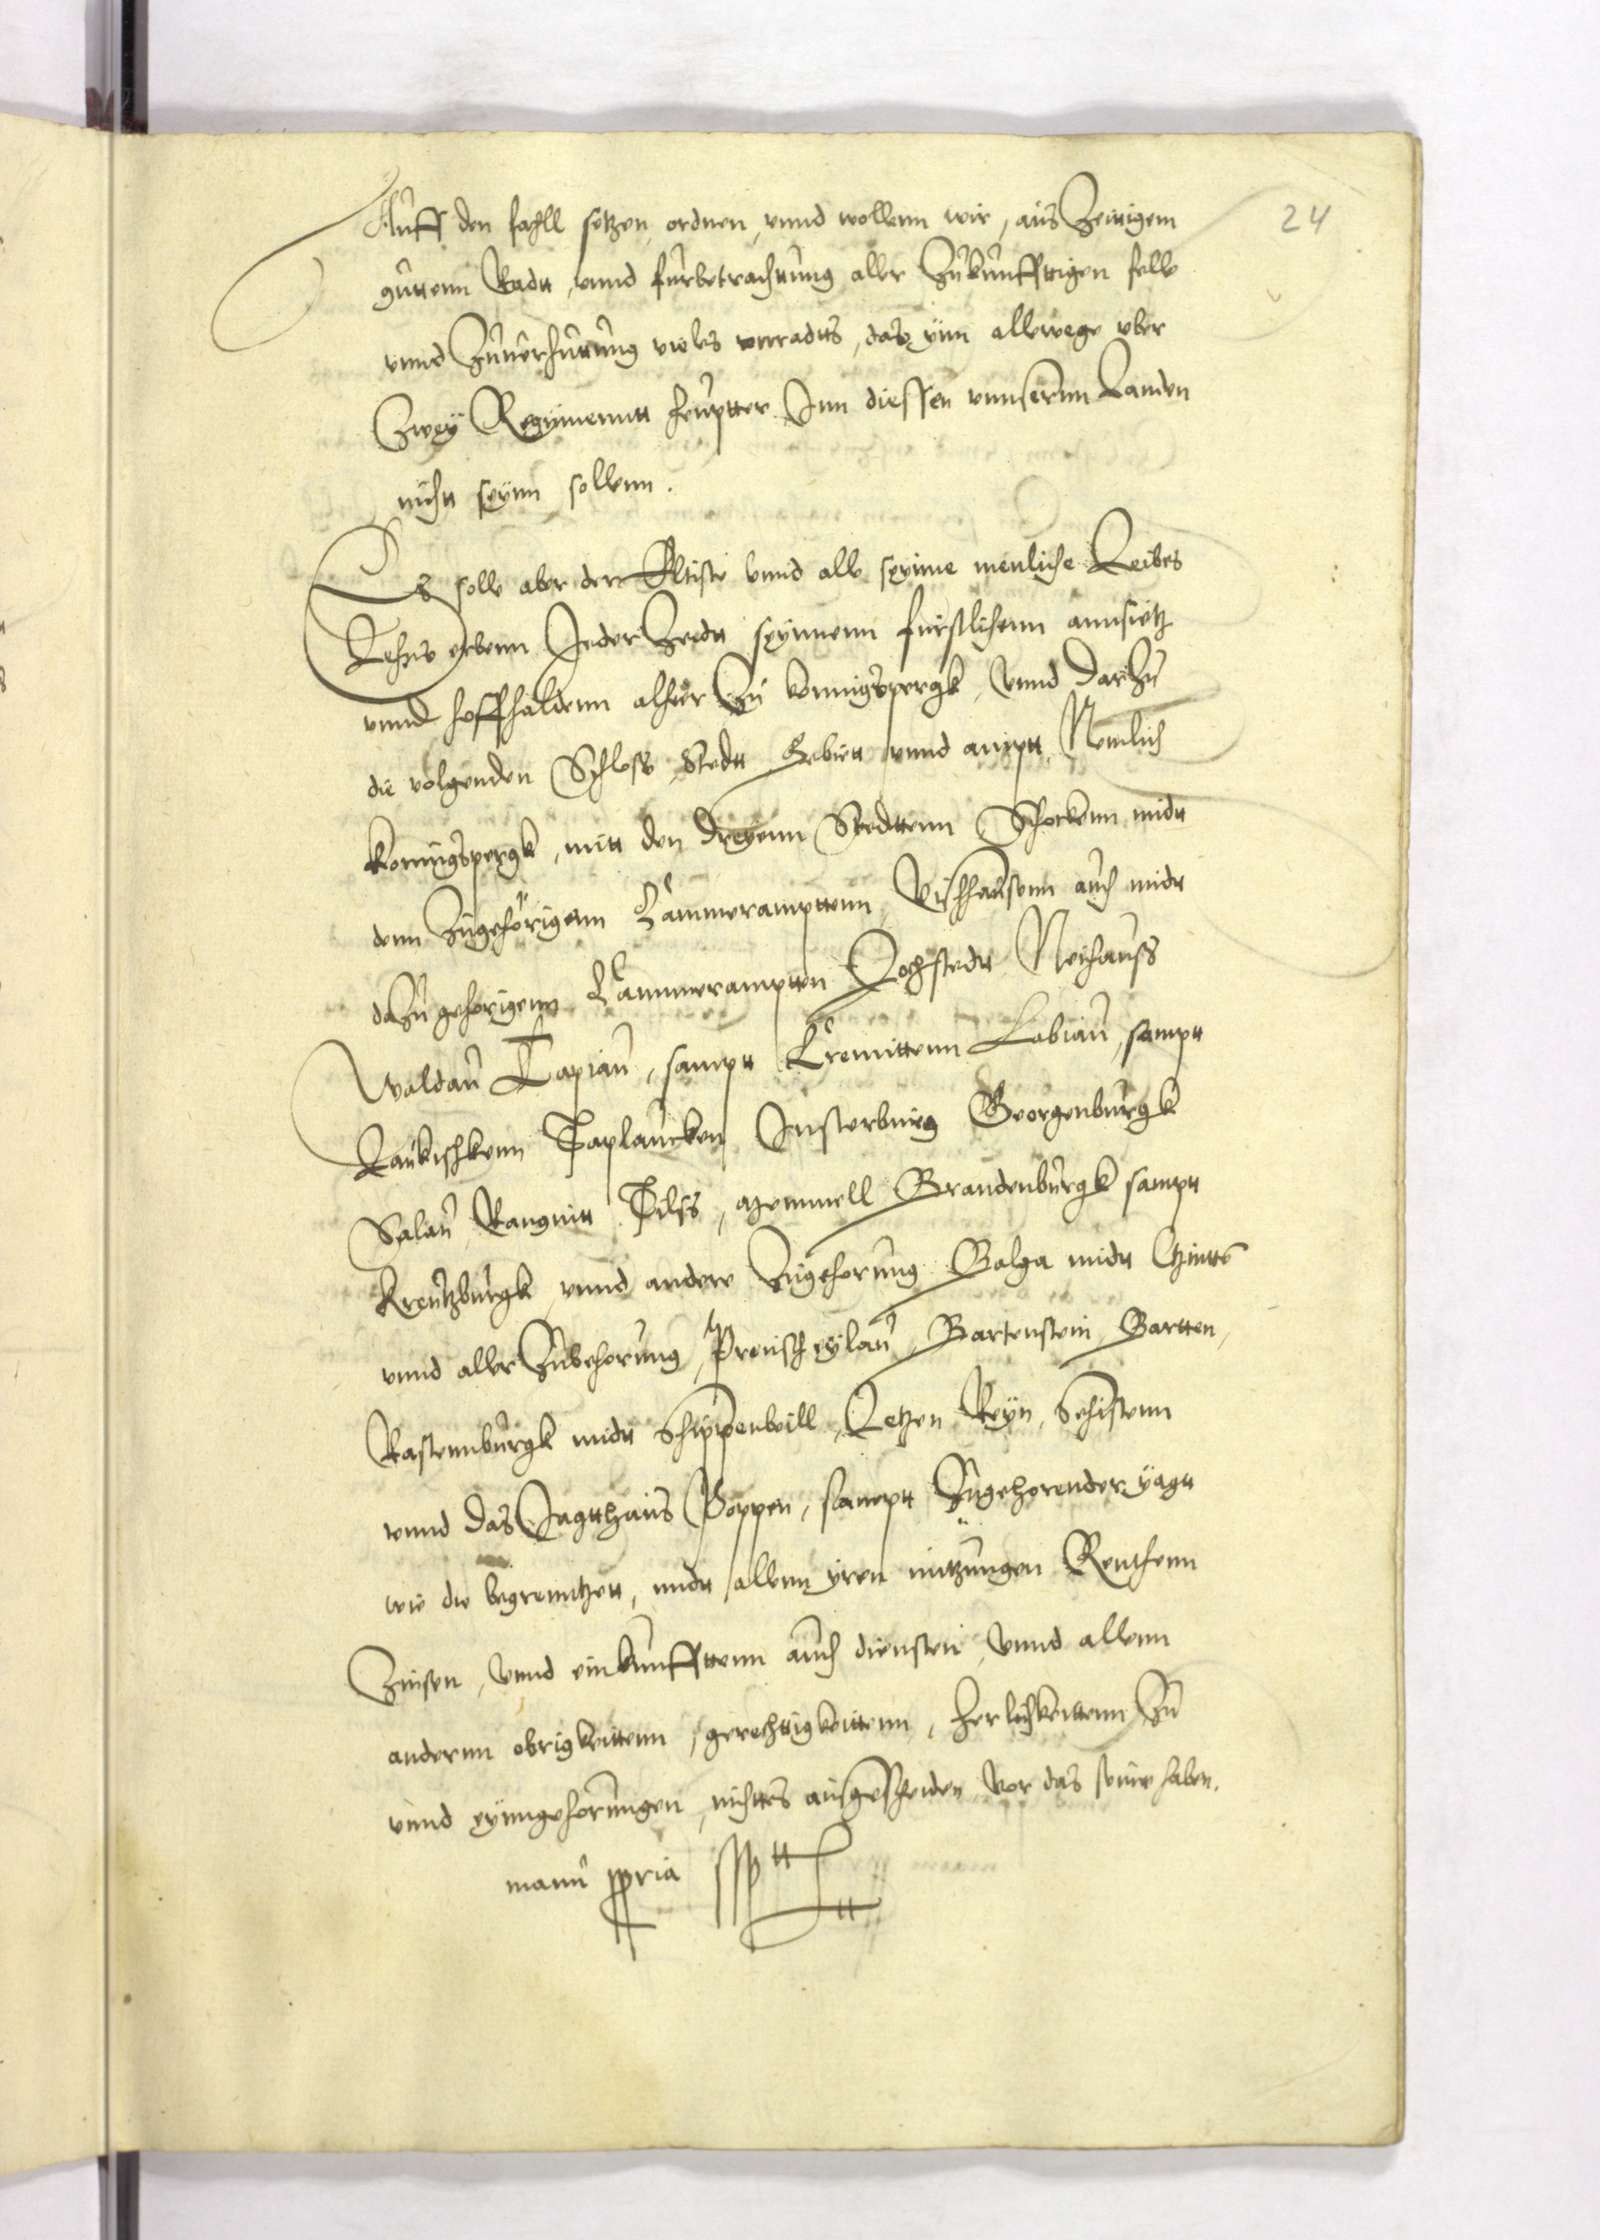 24
Auff den fahll setzen, ordnen, vnnd wollenn wir, aus Zeittigem
guttenn Radtt, vnnd furbetrachtung aller Zukunfftigen felle
vnnd Zuuerhuttung vieles vnradtts, das ynn allewege vber
Zwey Regymenntt heuptter Inn diessen vnnsernn Landen
nichtt seynn sollenn.
Es solle aber der Eltiste vnnd alle seynne menliche Leibes
Lehns erbenn Jeder Zeidtt seynnenn furstlichenn annsietz
vnnd hoffhaldenn alhier Zu konnigspergk, vnnd darzu
die volgenden Schloss, Stedtt Gebiett vnnd amptt, Nemlich
konnigspergk, mitt den dreyenn Stedttenn Schockenn midtt
denn Zugehorigenn Cammeramptteenn Vischhausenn auch midtt
dazu gehorigenn Cammerampten Lochstedtt Neuhauss
Waldau Tapiau, samptt Cremittenn Labiau, samptt
Laukischkenn Taplaucken Insterburg Georgenburgk
Salau, Rangnitt Tilss, Memmell Brandenburgk samptt
Kreutzburgk, vnnd andere Zugehorung Balga midtt Zintten
vnnd aller Zubehorung, Preuscheylau, Bartenstein, Bartten,
Rastennburgk midtt Schippenbeill, Letzen Reyn, Sehstenn
vnnd das Jagtthaus Poppen, samptt Zugehorender yagtt
wie die begrenntzett, midtt allenn yren nutzungen Renthenn
Zinsen, vnnd einkunfftenn auch diensten, vnnd allenn
andernn obrigkeittenn, gerechttigkeittenn, herlichkeittenn Zu
vnnd eynngehorungen, nichttes ausgescheiden vor das seine haben.
manu ppria sspt